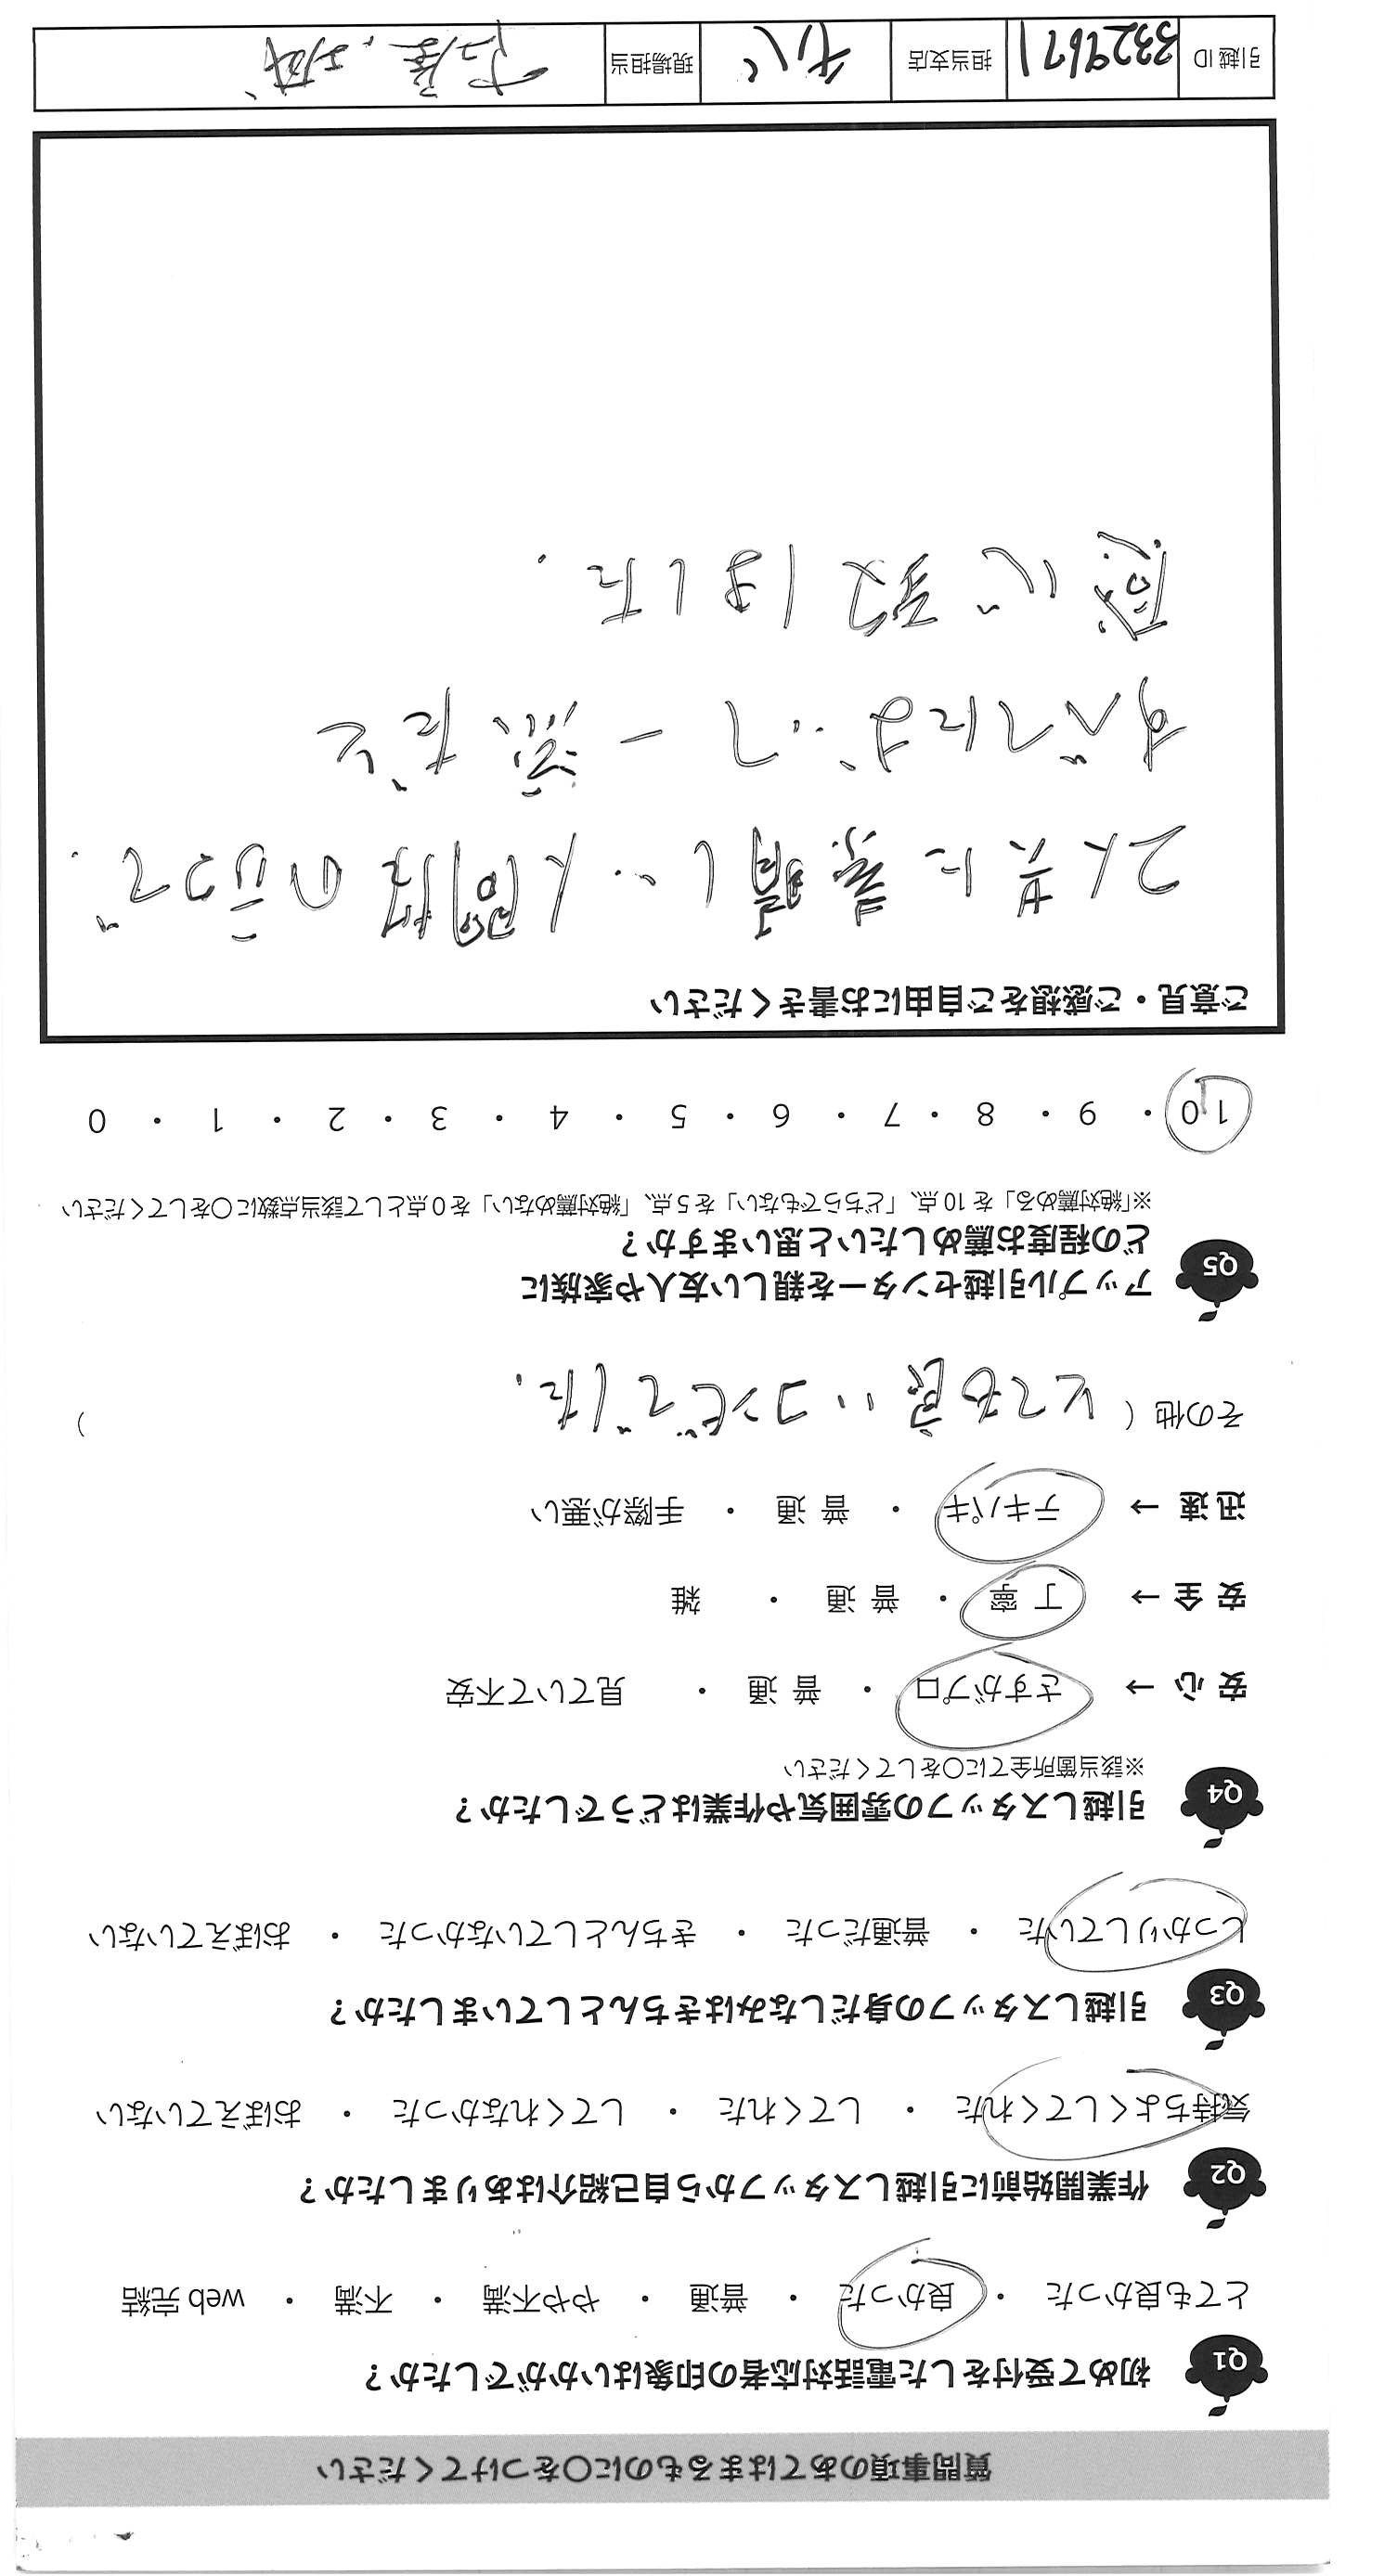 質問事項のあてはまるものに〇をつけてください
Q1 初めて受付をした電話対応者の印象はいかがでしたか？
とても良かった ・ 良かった ・ 普通 ・ やや不満 ・ 不満 ・ web 完結
Q2 作業開始前に引越しスタッフから自己紹介はありましたか？
気持ちよくしてくれた ・ してくれた ・ してくれなかった ・ おぼえていない
Q3 引越しスタッフの身だしなみはきちんとしていましたか？
しっかりしていた ・ 普通だった ・ きちんとしていなかった ・ おぼえていない
Q4 引越しスタッフの雰囲気や作業はどうでしたか？
※該当箇所全てに〇をしてください
安 心 → さすがプロ ・ 普 通 ・ 見ていて不安
安 全 → 丁 寧 ・ 普 通 ・ 雑
迅 速 → テキパキ ・ 普 通 ・ 手際が悪い
その他（ とても良いコンビでした. ）
Q5 アップル引越センターを親しい友人や家族に
どの程度お薦めしたいと思いますか？
※「絶対薦める」を 10 点、「どちらでもない」を 5 点、「絶対薦めない」を 0 点として該当点数に〇をしてください
10 ・ 9 ・ 8 ・ 7 ・ 6 ・ 5 ・ 4 ・ 3 ・ 2 ・ 1 ・ 0
ご意見・ご感想をご自由にお書きください
2人共に素晴しい人間性の
すべてにおいて一流だと
感じ致しました.
引越 ID 3329671 担当支店 現場担当